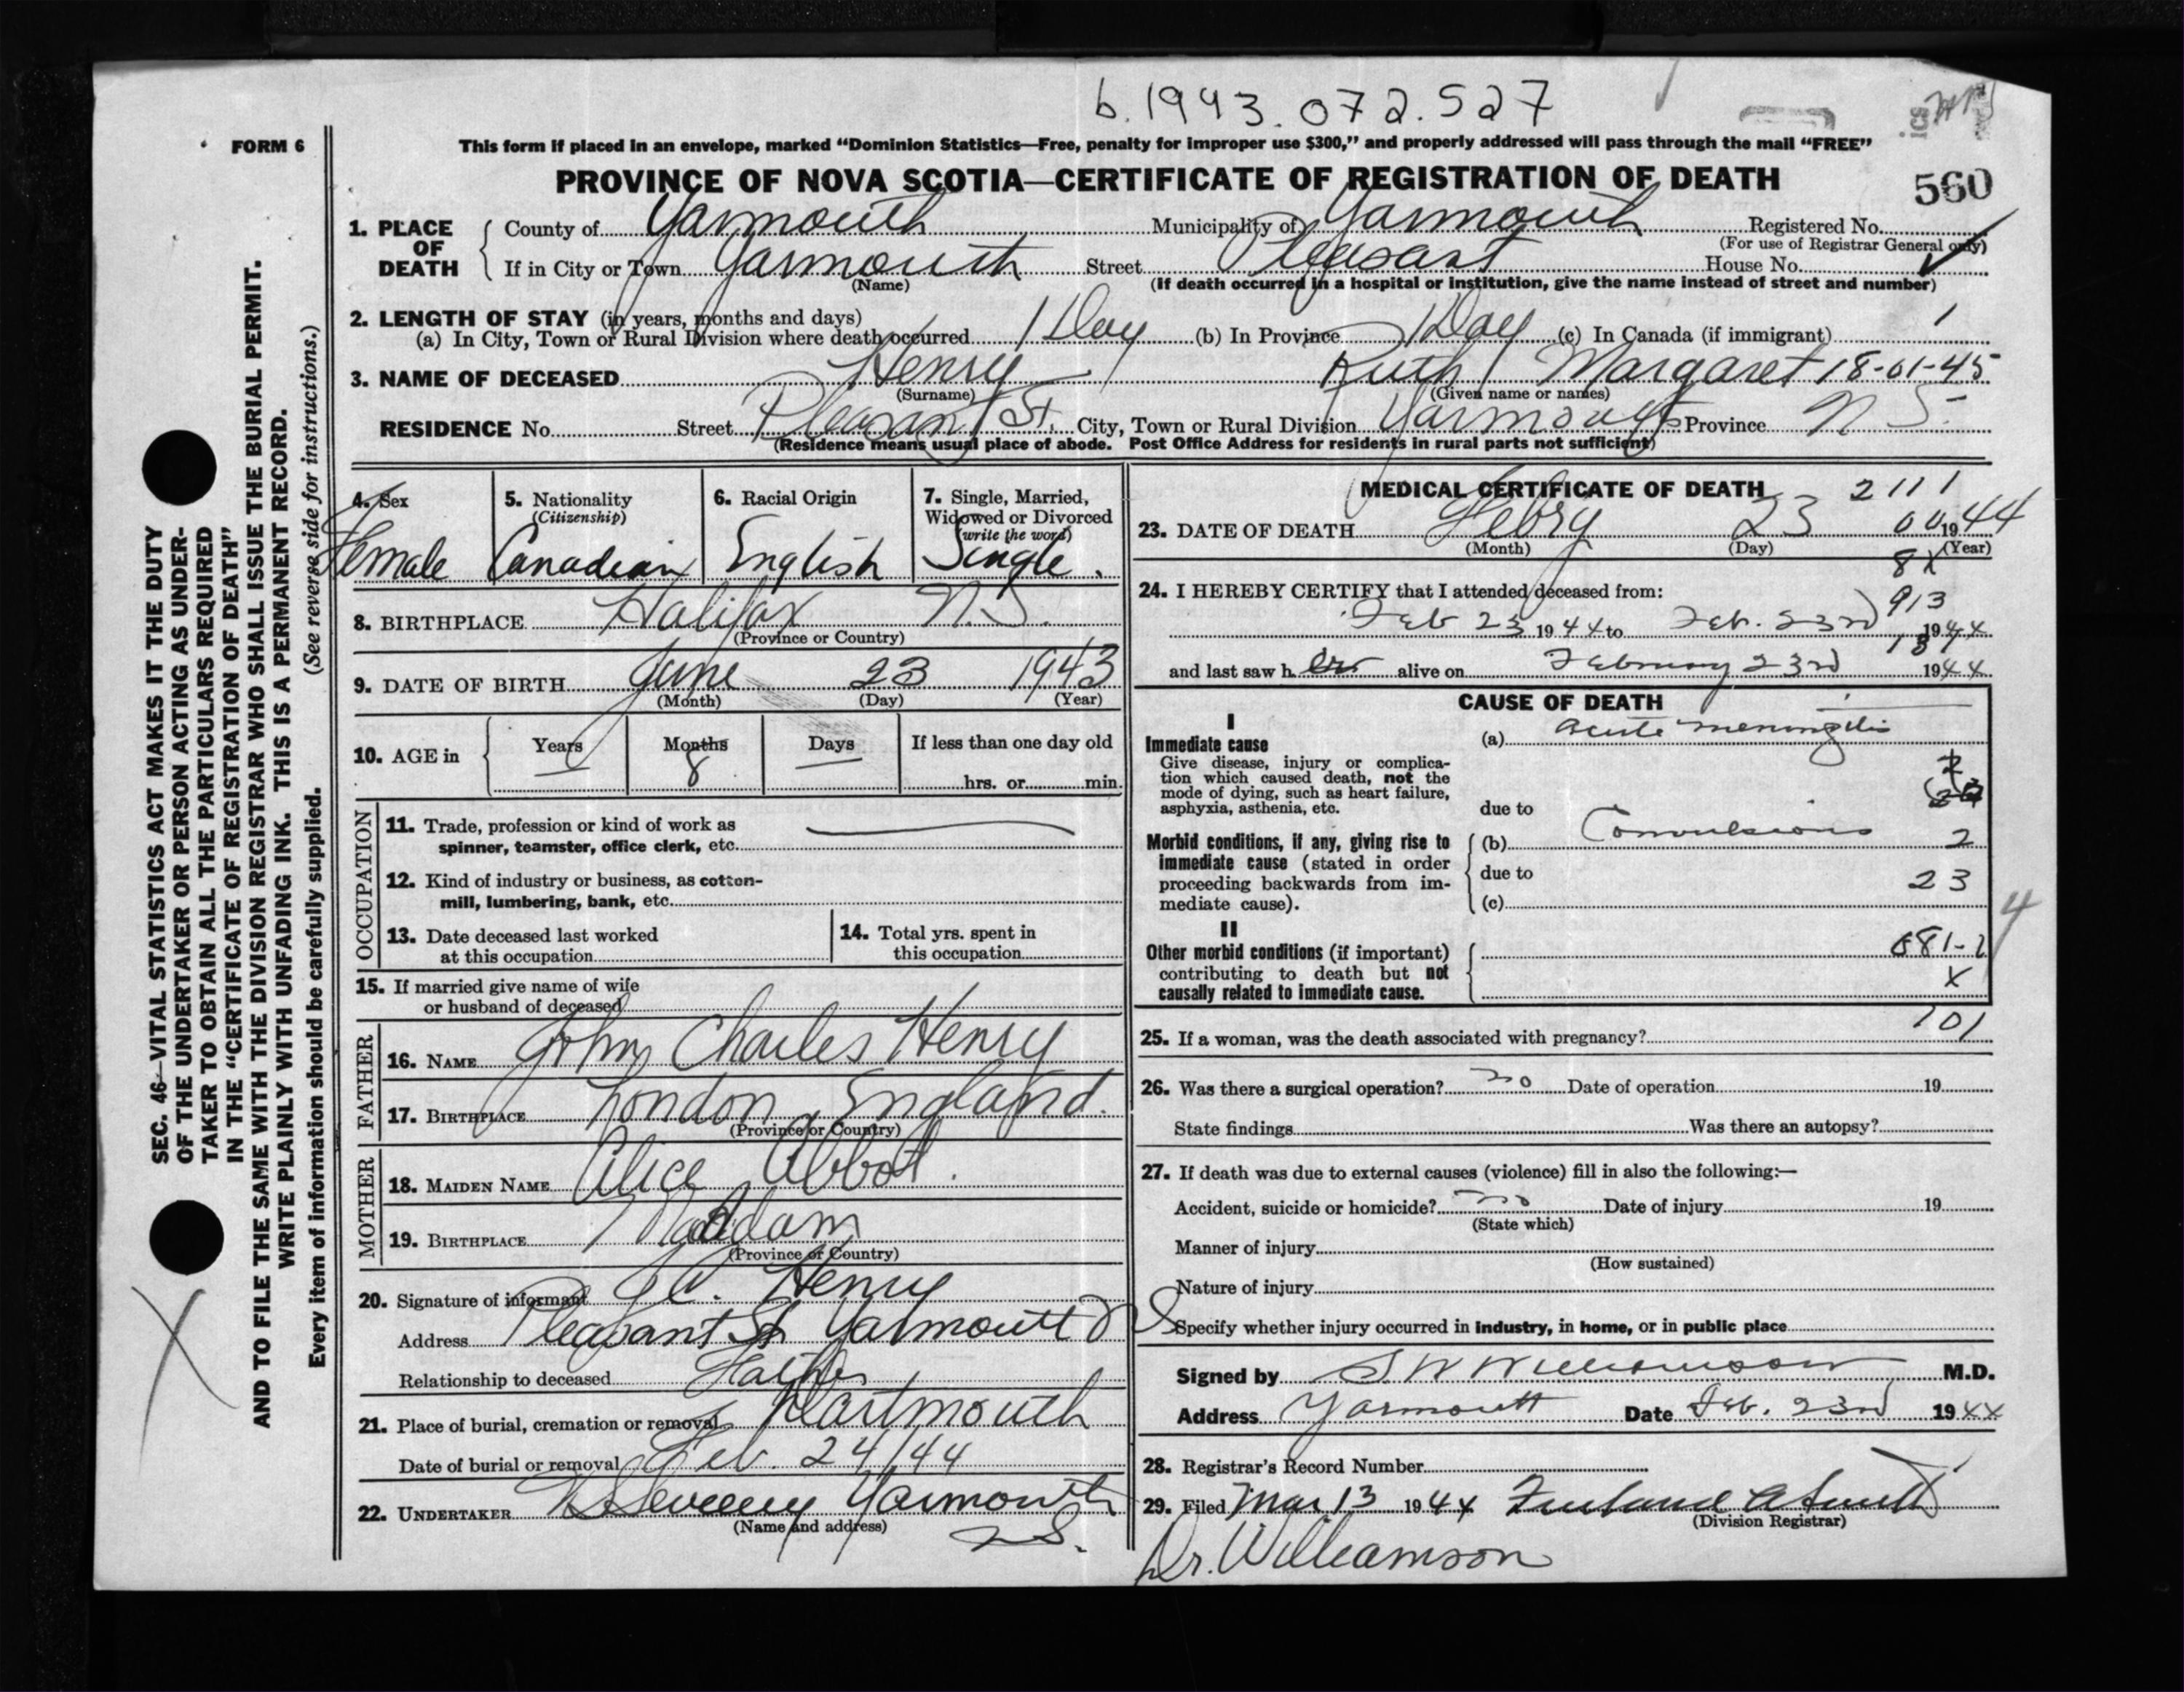 b.1943.072.527
FORM 6
This form if placed in an envelope, marked “Dominion Statistics—Free, penalty for improper use $300,” and properly addressed will pass through the mail “FREE”
PROVINCE OF NOVA SCOTIA—CERTIFICATE OF REGISTRATION OF DEATH
560
1. PLACE OF DEATH
County of Yarmouth Municipality of Yarmouth Registered No.
(For use of Registrar General only)
If in City or Town Yarmouth Street Pleasant House No.
(Name) (If death occurred in a hospital or institution, give the name instead of street and number)
2. LENGTH OF STAY (in years, months and days)
(a) In City, Town or Rural Division where death occurred 1 Day (b) In Province 1 Day (c) In Canada (if immigrant) 1
3. NAME OF DECEASED Henry Ruth Margaret 18-01-45
(Surname) (Given name or names)
RESIDENCE No. Street Pleasant St. City, Town or Rural Division Yarmouth Province N S.
(Residence means usual place of abode. Post Office Address for residents in rural parts not sufficient)
4. Sex Female
5. Nationality (Citizenship) Canadian
6. Racial Origin English
7. Single, Married, Widowed or Divorced (write the word) Single.
8. BIRTHPLACE Halifax N.S.
(Province or Country)
9. DATE OF BIRTH June 23 1943
(Month) (Day) (Year)
10. AGE in Years — Months 8 Days — If less than one day old
hrs. or min.
OCCUPATION
11. Trade, profession or kind of work as
spinner, teamster, office clerk, etc.
12. Kind of industry or business, as cotton-
mill, lumbering, bank, etc.
13. Date deceased last worked
at this occupation
14. Total yrs. spent in
this occupation
15. If married give name of wife
or husband of deceased
FATHER
16. NAME John Charles Henry
17. BIRTHPLACE London England.
(Province or Country)
MOTHER
18. MAIDEN NAME Alice Abbot.
19. BIRTHPLACE
(Province or Country)
20. Signature of informant J C. Henry
Address Pleasant St Yarmouth N S
Relationship to deceased Father
21. Place of burial, cremation or removal Dartmouth
Date of burial or removal Feb. 24/44
22. UNDERTAKER Sweeny Yarmouth
(Name and address) N S.
MEDICAL CERTIFICATE OF DEATH 2111
23. DATE OF DEATH Febry 23 00 1944
(Month) (Day) (Year)
8X
24. I HEREBY CERTIFY that I attended deceased from:
913
Feb 23 1944 to Feb. 23rd 1944
and last saw her alive on February 23rd 1944
CAUSE OF DEATH
I
Immediate cause
Give disease, injury or complica-
tion which caused death, not the
mode of dying, such as heart failure,
asphyxia, asthenia, etc.
(a) acute meningitis
due to
Morbid conditions, if any, giving rise to
immediate cause (stated in order
proceeding backwards from im-
mediate cause).
(b) Convulsions 2
due to
23
(c)
4
II
Other morbid conditions (if important)
contributing to death but not
causally related to immediate cause.
X
25. If a woman, was the death associated with pregnancy? 101
26. Was there a surgical operation? no Date of operation 19
State findings Was there an autopsy?
27. If death was due to external causes (violence) fill in also the following:—
Accident, suicide or homicide? no Date of injury 19
(State which)
Manner of injury
(How sustained)
Nature of injury
Specify whether injury occurred in industry, in home, or in public place
Signed by S. W Williamson M.D.
Address Yarmouth Date Feb. 23rd 1944
28. Registrar's Record Number
29. Filed Mar 13 1944
(Division Registrar)
Dr. Williamson
SEC. 46—VITAL STATISTICS ACT MAKES IT THE DUTY
OF THE UNDERTAKER OR PERSON ACTING AS UNDER-
TAKER TO OBTAIN ALL THE PARTICULARS REQUIRED
IN THE “CERTIFICATE OF REGISTRATION OF DEATH”
AND TO FILE THE SAME WITH THE DIVISION REGISTRAR WHO SHALL ISSUE THE BURIAL PERMIT.
WRITE PLAINLY WITH UNFADING INK. THIS IS A PERMANENT RECORD.
Every item of information should be carefully supplied. (See reverse side for instructions.)